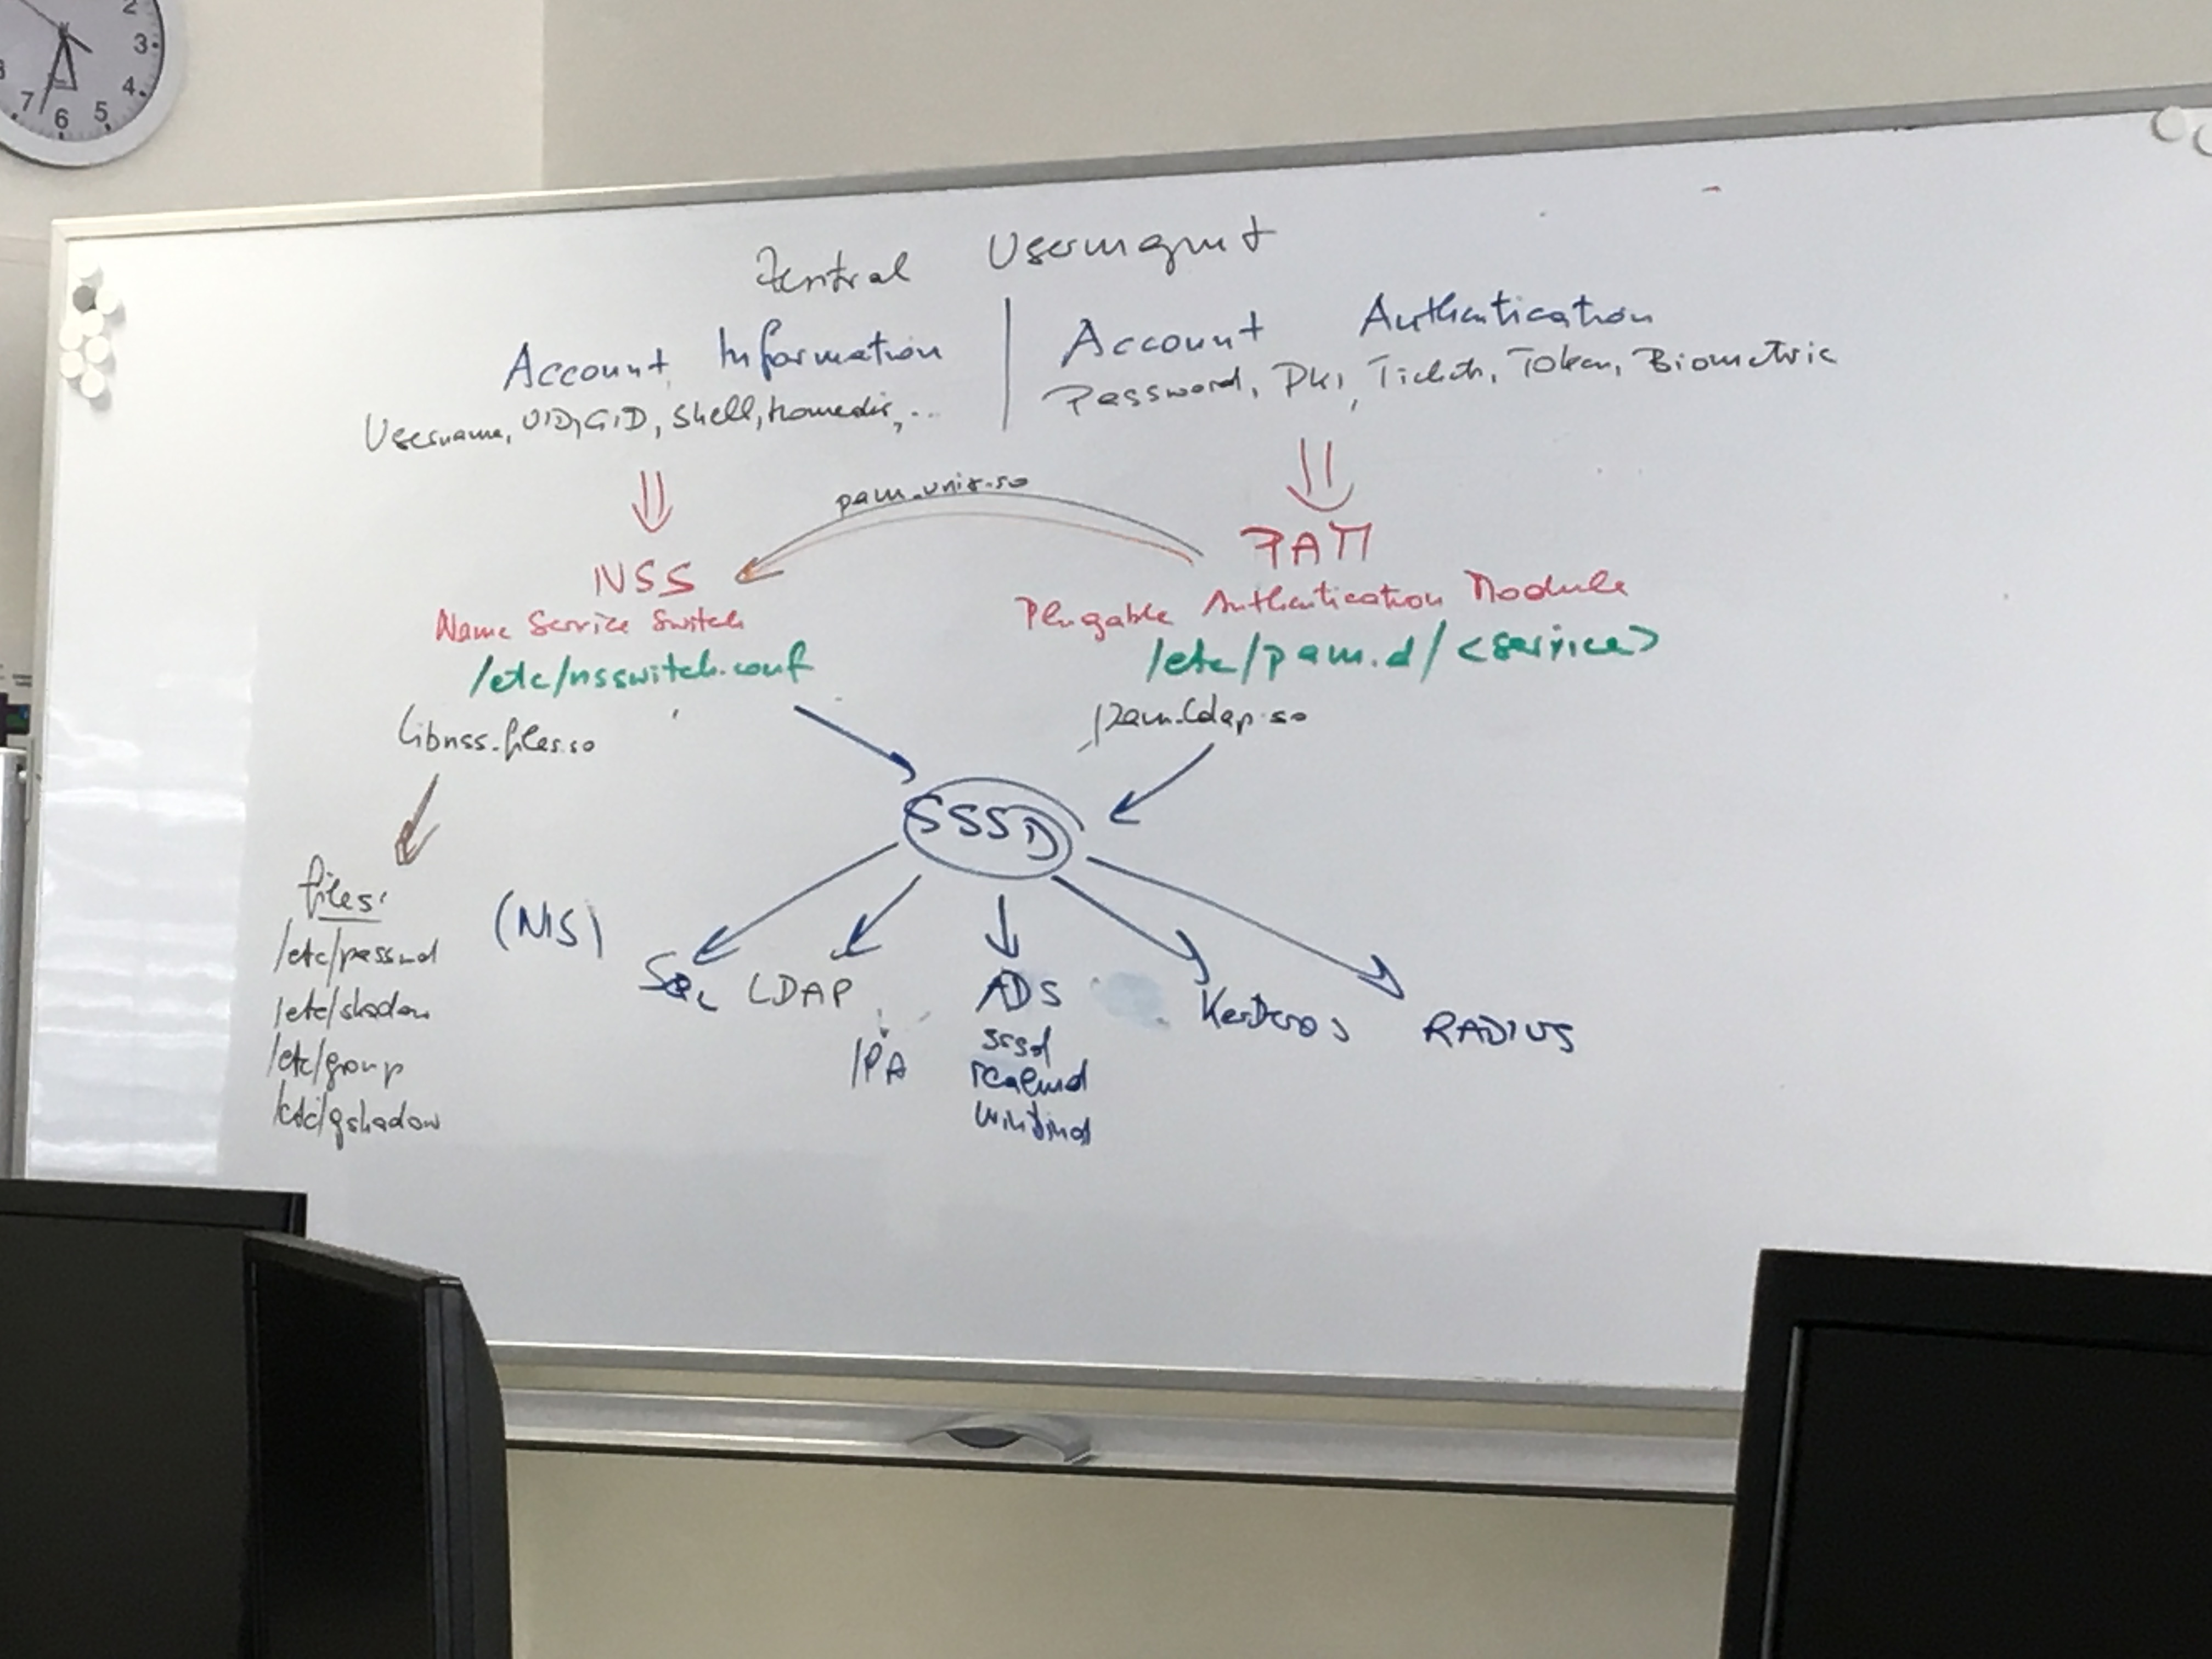 2
3
4
5
6
7
Zentral Usermgmt
Account Information
Username, UID, GID, Shell, Homedir, ...
Account Authentication
Password, PKI, Tickets, Token, Biometric
pam_unix.so
NSS
Name Service Switch
/etc/nsswitch.conf
libnss_files.so
PAM
Plugable Authentication Module
/etc/pam.d/<service>
pam_ldap.so
SSSD
files:
/etc/passwd
/etc/shadow
/etc/group
/etc/gshadow
(NIS)
SQL
LDAP
IPA
ADS
sssd
realmd
winbind
Kerberos
RADIUS